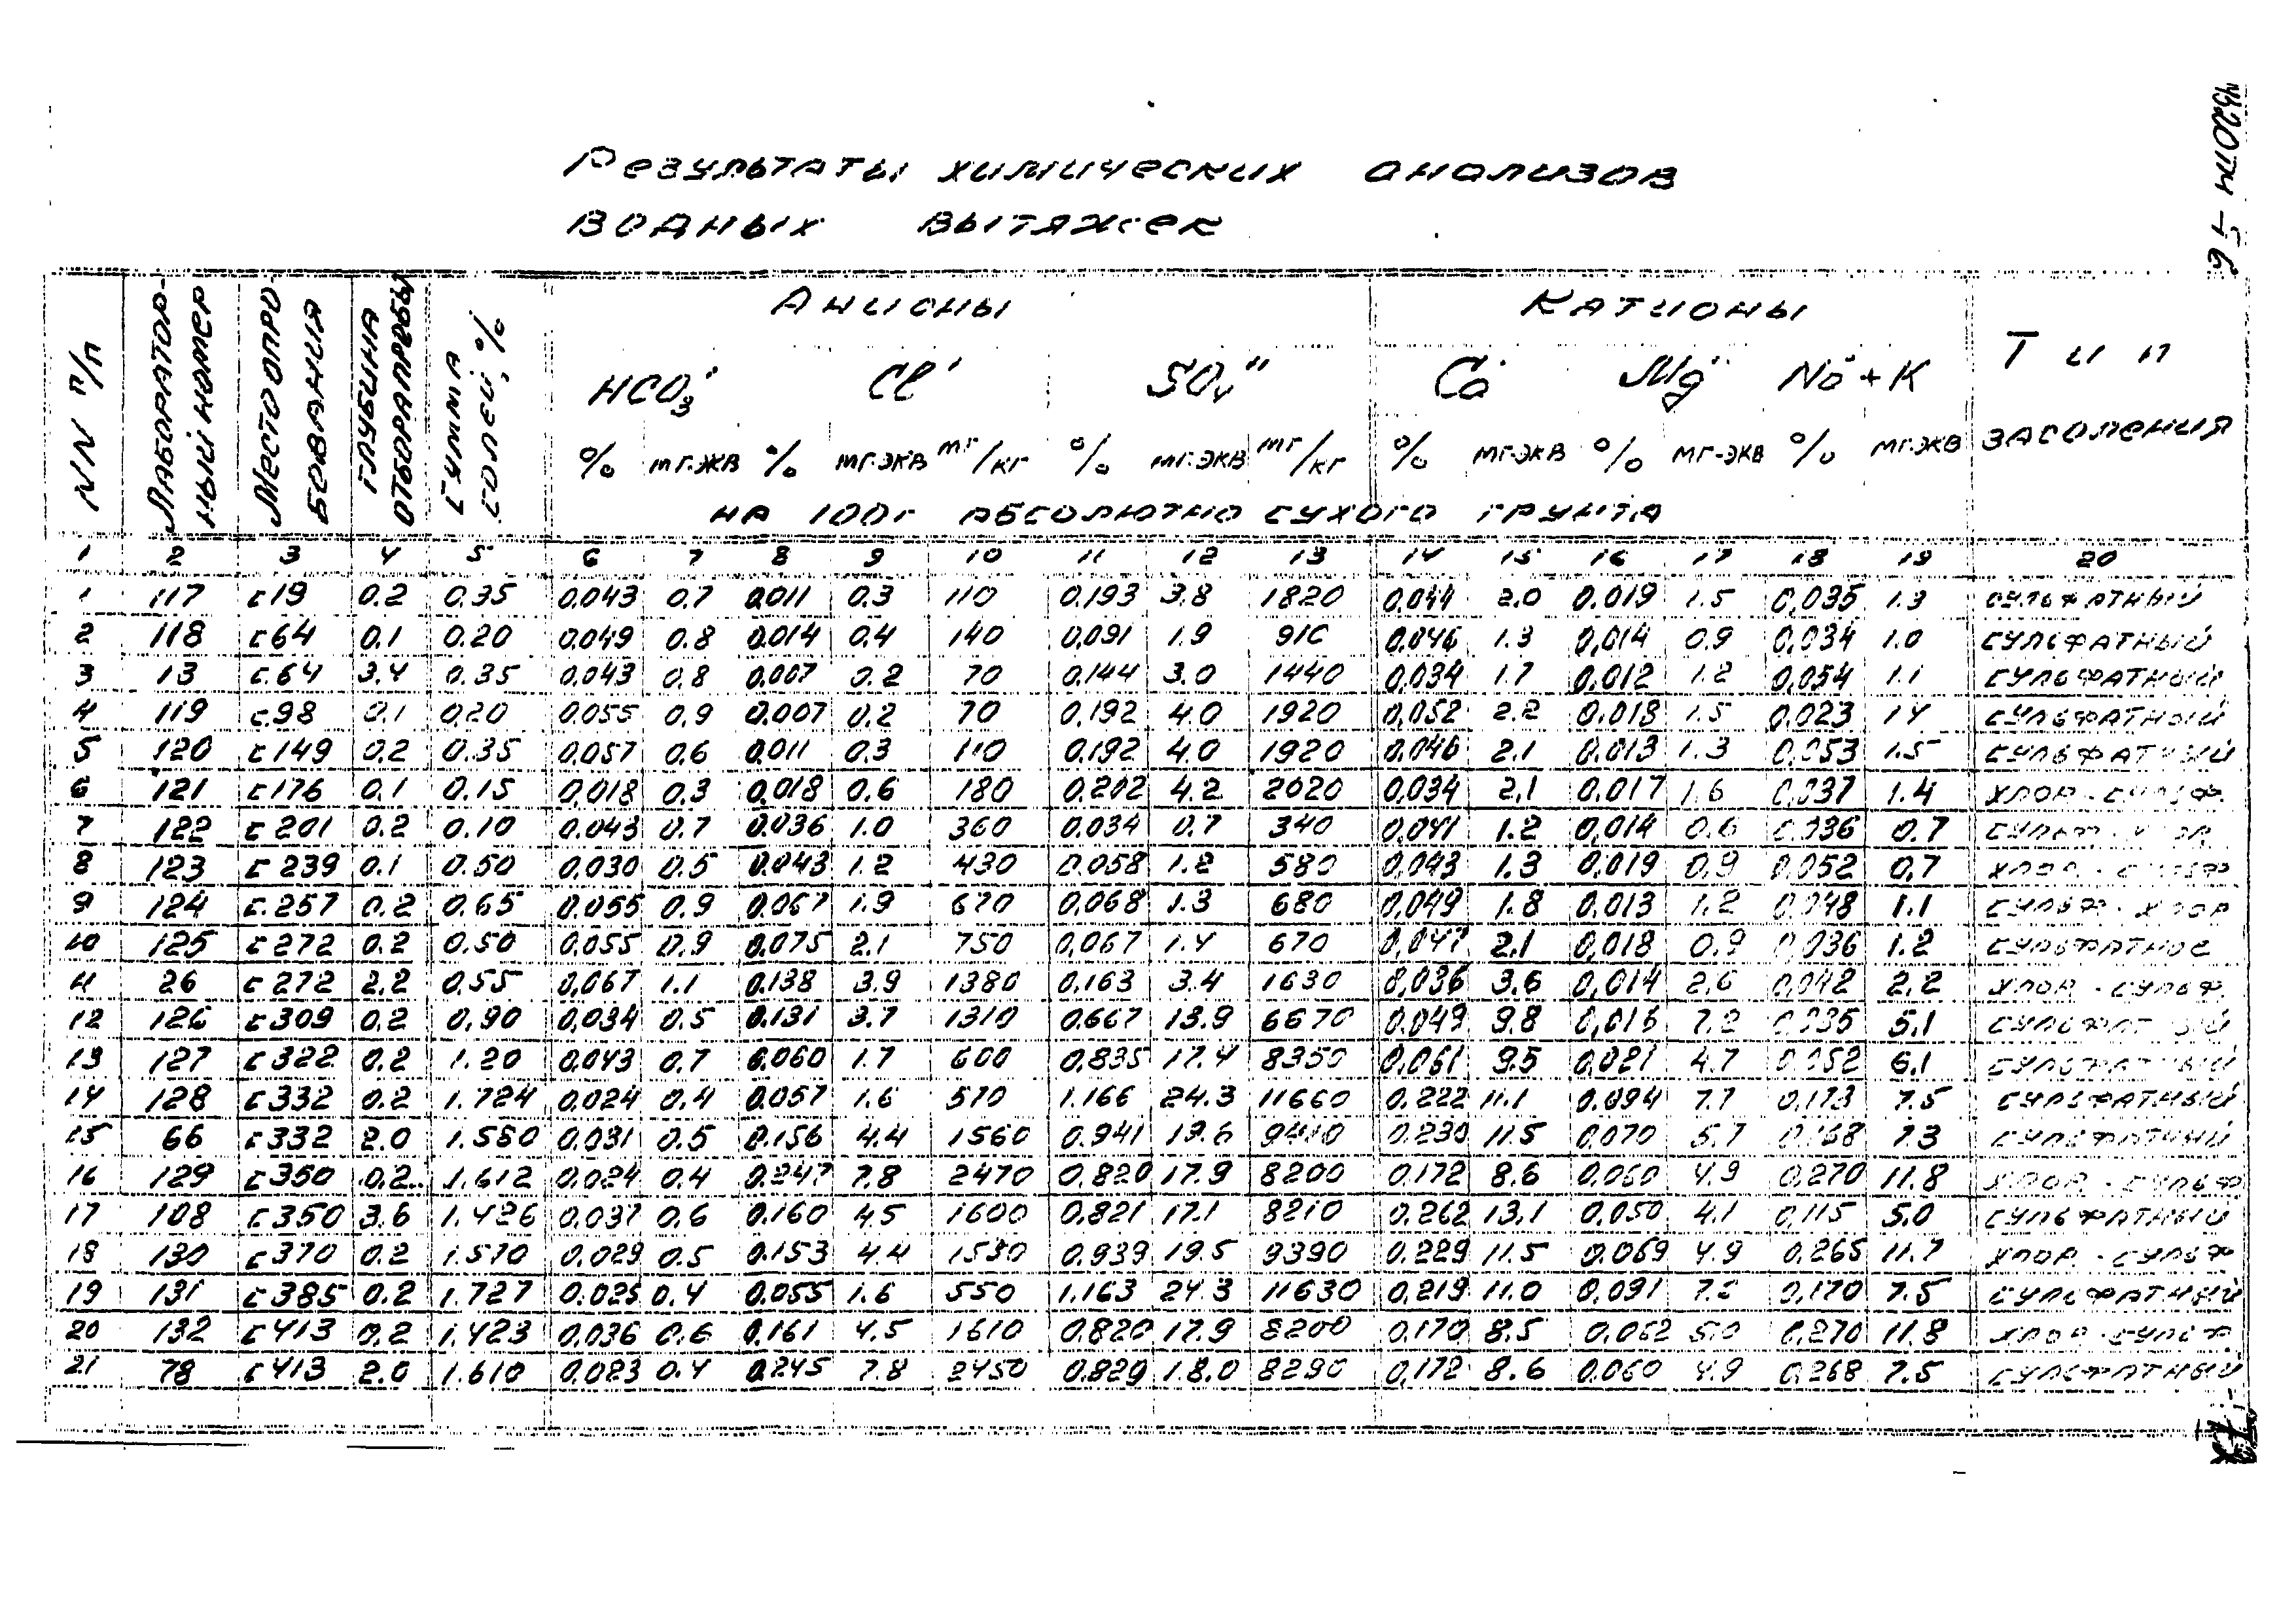 Результаты химических анализов
водных вытяжек
4320тм-5 6
NN п/п Лабораторный номер Место опробования Глубина отбора пробы Сумма солей, % Анионы Катионы Тип засоления
HCO₃' Cl' SO₄" Ca¨ Mg¨ Na˙+K
% мг.экв % мг.экв мг/кг % мг.экв мг/кг % мг-экв % мг-экв % мг.экв
на 100г абсолютно сухого грунта
1 2 3 4 5 6 7 8 9 10 11 12 13 14 15 16 17 18 19 20
1 117 с19 0.2 0.35 0,043 0.7 0,011 0.3 110 0,193 3.8 1820 0,044 2.0 0.019 1.5 0,035 1.3 сульфатный
2 118 с64 0,1 0.20 0,049 0.8 0,014 0,4 140 0,091 1.9 910 0,046 1.3 0,014 0.9 0,034 1.0 сульфатный
3 13 с.64 3.4 0.35 0,043 0.8 0,007 0.2 70 0,144 3.0 1440 0,034 1.7 0,012 1.2 0,054 1.1 сульфатный
4 119 с.98 0,1 0,20 0,055 0,9 0,007 0.2 70 0,192 4.0 1920 0,052 2.2 0.018 1.5 0,023 14 сульфатный
5 120 с149 0,2 0.35 0,057 0,6 0,011 0,3 110 0,192 4.0 1920 0,046 2.1 0,013 1.3 0,053 1.5 сульфатный
6 121 с176 0,1 0.15 0,018 0.3 0,018 0,6 180 0,202 4.2 2020 0,034 2,1 0,017 1.6 0,037 1.4 хлор.-сульф.
7 122 с201 0.2 0.10 0.043 0.7 0.036 1.0 360 0,034 0,7 340 0,041 1.2 0,014 0.6 0,036 0.7 сульф.-хлор
8 123 с239 0,1 0.50 0,030 0.5 0.043 1.2 430 0.058 1.2 580 0,043 1.3 0,019 0,9 0,052 0,7 хлор.-сульф
9 124 с.257 0.2 0.65 0.055 0.9 0.067 1.9 670 0,068 1.3 680 0,049 1.8 0.013 1.2 0,048 1.1 сульф.-хлор
10 125 с272 0.2 0.50 0,055 0.9 0,075 2.1 750 0,067 1.4 670 0,047 2.1 0,018 0.9 0,036 1.2 сульфатное
11 26 с272 2.2 0,55 0,067 1.1 0.138 3.9 1380 0,163 3.4 1630 0,036 3.6 0,014 2.6 0,042 2.2 хлор.-сульф.
12 126 с309 0.2 0,90 0,034 0.5 0.131 3.7 1310 0.667 13.9 6670 0.049 9.8 0,016 7.2 0,035 5.1 сульфатный
13 127 с322 0.2 1.20 0,043 0.7 0.060 1.7 600 0,835 17.4 8350 0,061 9.5 0,021 4.7 0,052 6,1 сульфатный
14 128 с332 0.2 1.724 0,024 0.4 0,057 1.6 570 1.166 24.3 11660 0,222 11.1 0.094 7.7 0,173 7.5 сульфатный
15 66 с332 2.0 1.580 0,031 0.5 0.156 4.4 1560 0.941 19.6 9410 0.230 11.5 0,070 5.7 0,168 7.3 сульфатный
16 129 с350 0,2 1.612 0,024 0.4 0.247 7.8 2470 0,820 17.9 8200 0.172 8.6 0,060 4.9 0,270 11.8 хлор.-сульф
17 108 с350 3.6 1.426 0,037 0.6 0.160 4.5 1600 0,821 17.1 8210 0.262 13,1 0,050 4.1 0,115 5.0 сульфатный
18 130 с370 0.2 1.570 0,029 0.5 0.153 4.4 1530 0,939 19.5 9390 0.229 11.5 0,069 4.9 0.265 11.7 хлор.-сульф
19 131 с385 0.2 1.727 0.025 0.4 0.055 1.6 550 1,163 24.3 11630 0,219 11.0 0,091 0,170 7.5 сульфатный
20 132 с413 0,2 1.423 0,036 0.6 0,161 4.5 1610 0,820 17.9 8200 0,170 8.5 0,062 5.0 0.270 11.8 хлор-сульф
21 78 с413 2.0 1.610 0,023 0.4 0.245 7.8 2450 0.829 18.0 8290 0,172 8.6 0,060 4.9 0,268 7.5 сульфатный